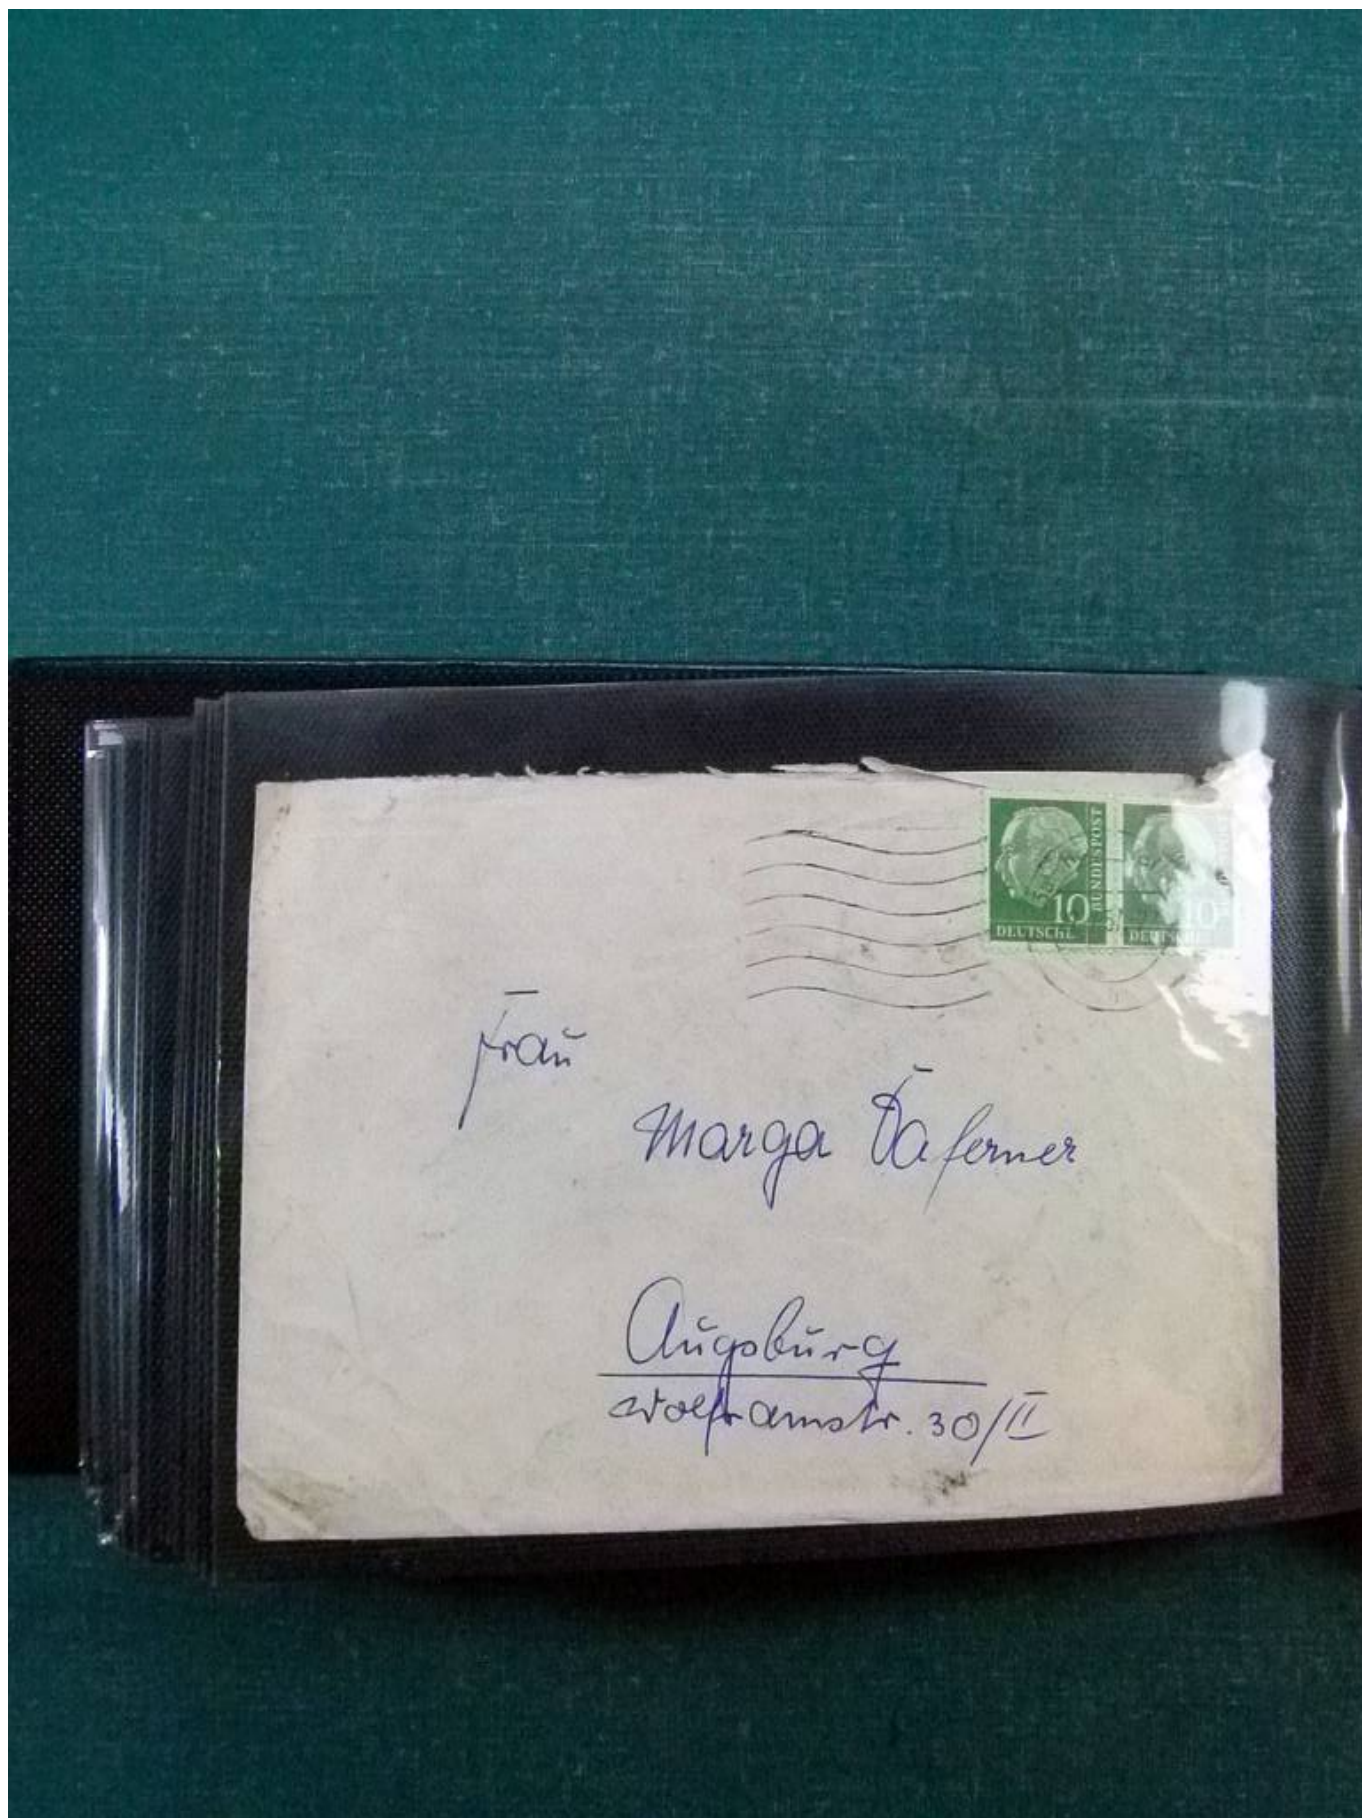 10
BUNDESPOST
DEUTSCHE
10
Frau
Marga Daferner
Augsburg
Wolframstr. 30/II